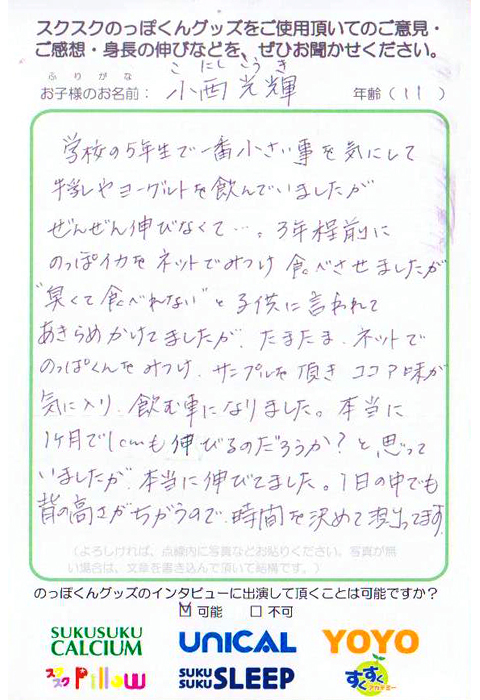 スクスクのっぽくんグッズをご使用頂いてのご意見・
ご感想・身長の伸びなどを、ぜひお聞かせください。
ふりがな こにし こうき
お子様のお名前： 小西 光輝 年齢（11）
学校の5年生で一番小さい事を気にして
牛乳やヨーグルトを飲んでいましたが
ぜんぜん伸びなくて…。3年程前に
のっぽイカをネットでみつけ 食べさせましたが
"臭くて食べれない"と子供に言われて
あきらめかけてましたが、たまたま、ネットで
のっぽくんをみつけ、サンプルを頂き ココア味が
気に入り、飲む事になりました。本当に
1ヶ月で1cmも伸びるのだろうか？と思って
いましたが、本当に伸びてました。1日の中でも
背の高さがちがうので、時間を決めて測ってます。
（よろしければ、点線内に写真などお貼りください。写真が無
い場合は、文章を書き込んで頂いて結構です。）
のっぽくんグッズのインタビューに出演して頂くことは可能ですか？
☑ 可能 □ 不可
SUKUSUKU CALCIUM UNICAL YOYO
スクスク Pillow SUKU SUKU SLEEP すくすくアカデミー